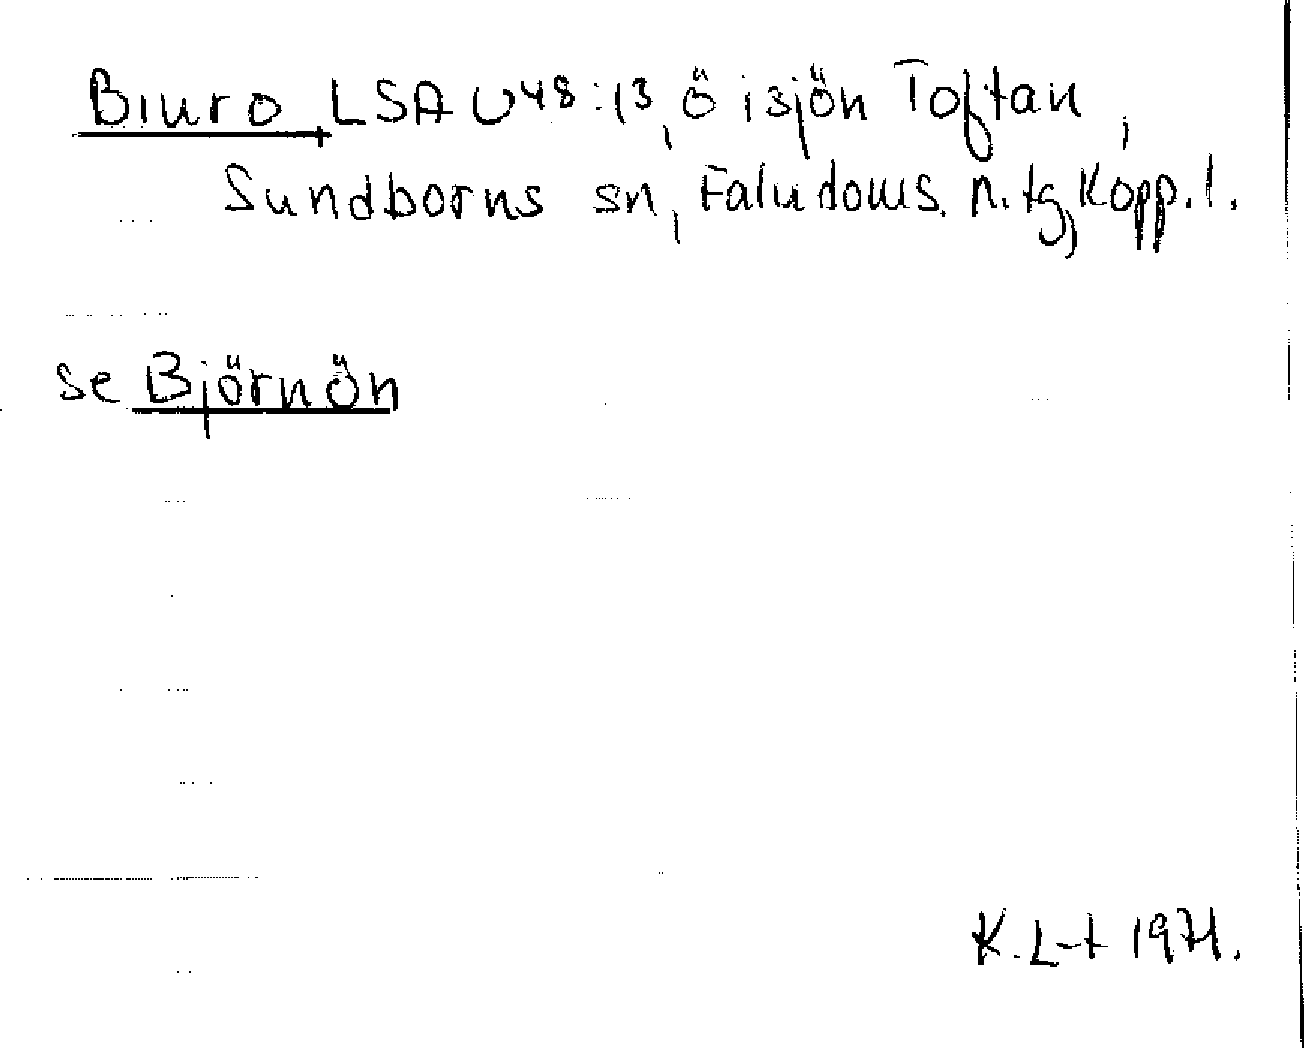 Biuro, LSA U48:13, ö i sjön Toftan,
Sundborns sn, Falu doms. n. tg, Kopp. l.
se Björnön
K. L-t 1971.